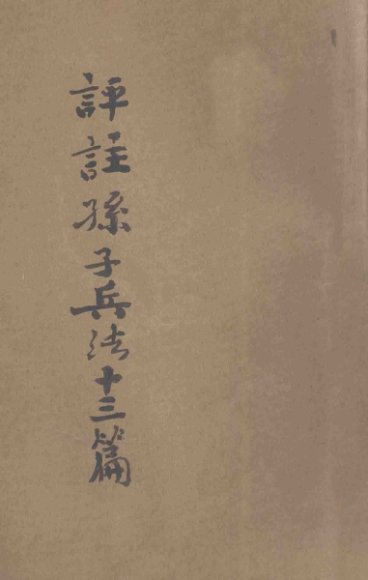 評註孫子兵法十三篇